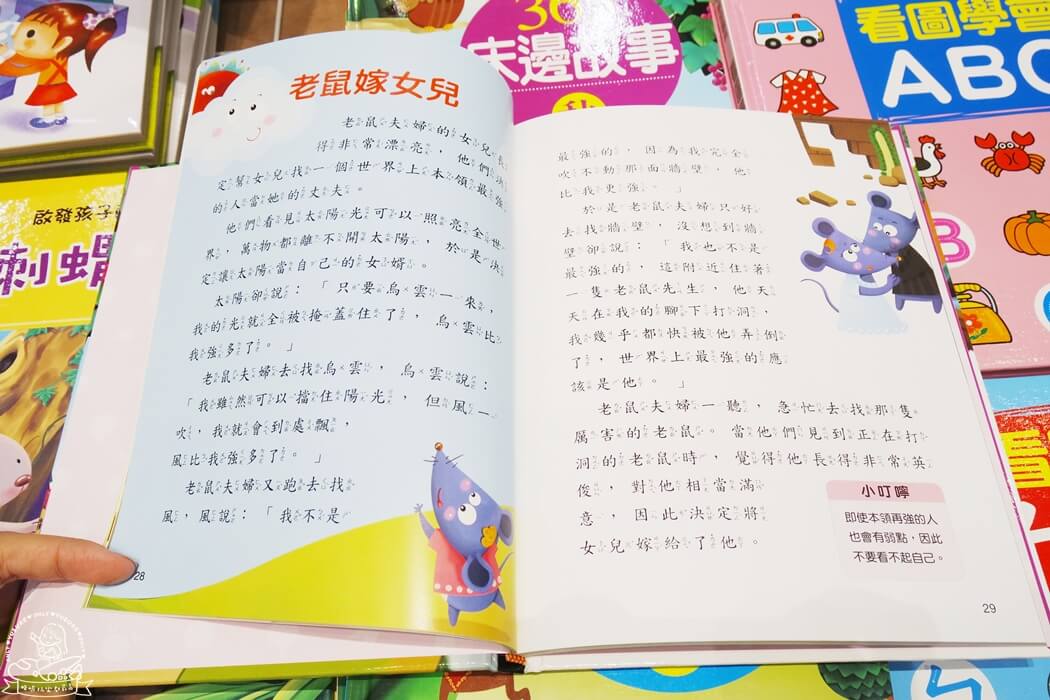 老鼠嫁女兒
老鼠夫婦的女兒長
得非常漂亮，他們決
定幫女兒找一個世界上本領最強
的人當她的丈夫。
他們看見太陽光可以照亮全世
界，萬物都離不開太陽，於是決
定讓太陽當自己的女婿。
太陽卻說：「只要烏雲一來，
我的光就全被掩蓋住了，烏雲比
我強多了。」
老鼠夫婦去找烏雲，烏雲說：
「我雖然可以擋住陽光，但風一
吹，我就會到處飄，
風比我強多了。」
老鼠夫婦又跑去找
風，風說：「我不是
28
最強的，因為我完全
吹不動那面牆壁，他
比我更強。」
於是老鼠夫婦只好
去找牆壁，沒想到牆
壁卻說：「我也不是
最強的，這附近住著
一隻老鼠先生，他天
天在我的腳下打洞，
我幾乎都快被他弄倒
了，世界上最強的應
該是他。」
老鼠夫婦一聽，急忙去找那隻
厲害的老鼠。當他們見到正在打
洞的老鼠時，覺得他長得非常英
俊，對他相當滿
意，因此決定將
女兒嫁給了他。
小叮嚀
即使本領再強的人
也會有弱點，因此
不要看不起自己。
29
床邊故事
看圖學會
ABC
啟發孩子
刺蝟
B